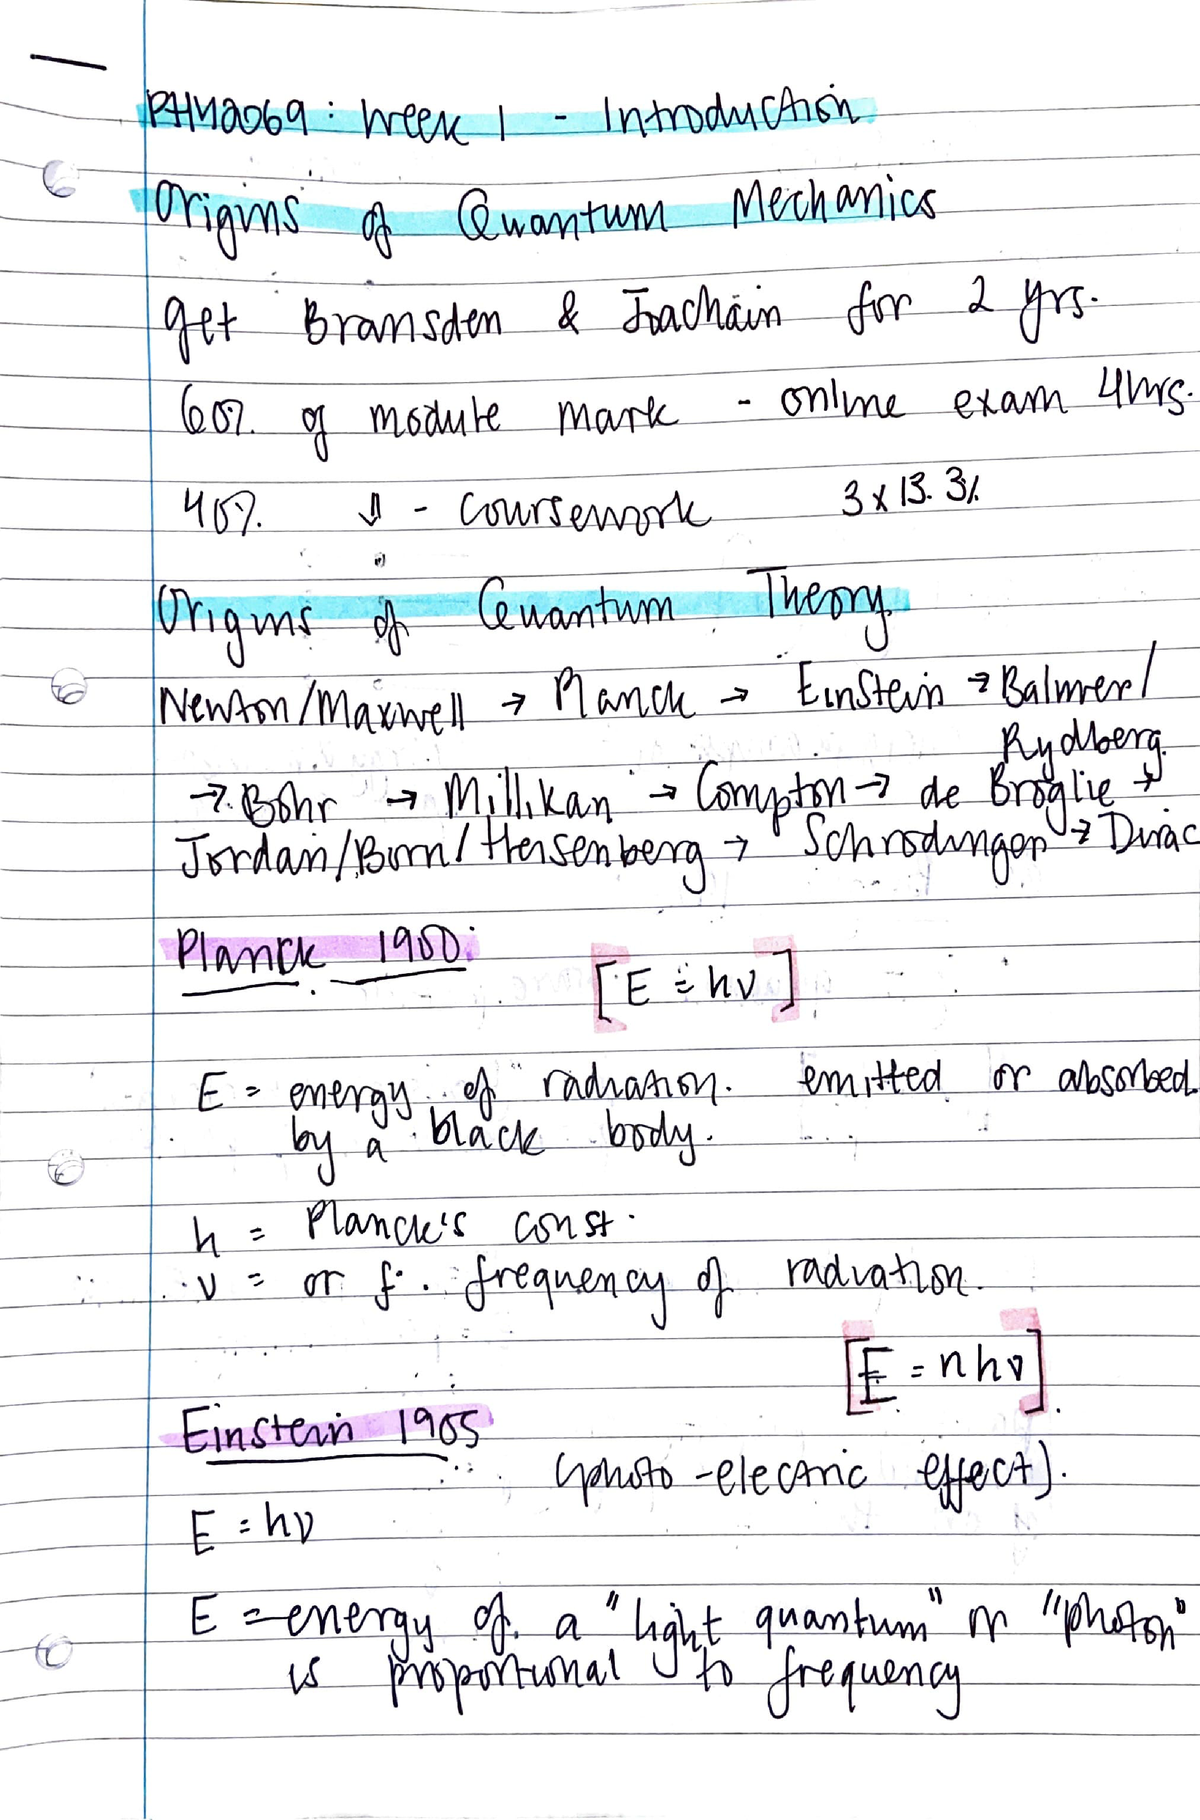 PHY2069 : Week 1 - Introduction
Origins of Quantum Mechanics
get Bransden & Joachain for 2 yrs.
60% of module mark - online exam 4hrs.
40% ↓ - coursework 3 x 13.3%
Origins of Quantum Theory.
Newton/Maxwell → Planck → Einstein → Balmer/
Rydberg.
→ Bohr → Millikan → Compton → de Broglie →
Jordan/Born/Heisenberg → Schrodinger → Dirac
Planck 1900:
[E = hν]
E = energy of radiation. emitted or absorbed
by a black body.
h = Planck's const.
ν = or f. frequency of radiation.
[E = nhν].
Einstein 1905
(photo-electric effect).
E = hν
E = energy of a "light quantum" or "photon"
is proportional to frequency